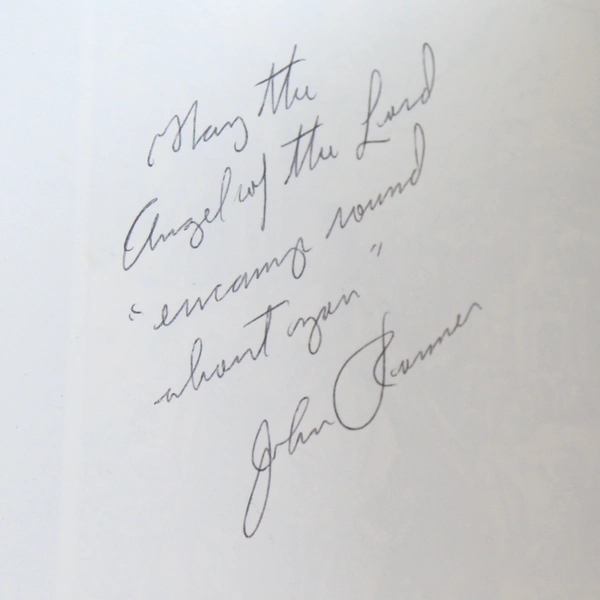 May the
Angel of the Lord
"encamp round
about you"
John